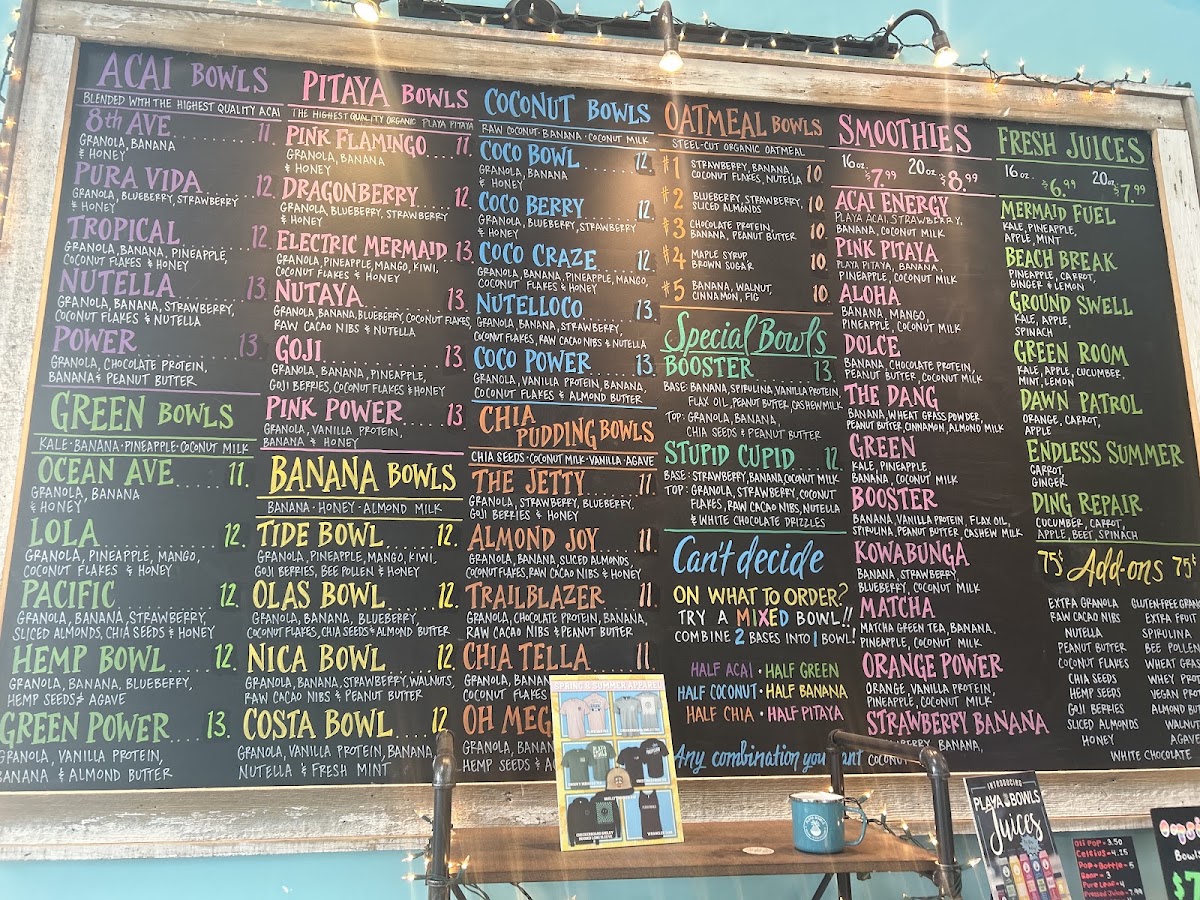 ACAI BOWLS
BLENDED WITH THE HIGHEST QUALITY ACAI
8th AVE 11.
GRANOLA, BANANA
& HONEY
PURA VIDA 12.
GRANOLA, BLUEBERRY, STRAWBERRY
& HONEY
TROPICAL 12.
GRANOLA, BANANA, PINEAPPLE,
COCONUT FLAKES & HONEY
NUTELLA 13.
GRANOLA, BANANA, STRAWBERRY,
COCONUT FLAKES & NUTELLA
POWER 13.
GRANOLA, CHOCOLATE PROTEIN,
BANANA & PEANUT BUTTER
GREEN BOWLS
KALE·BANANA·PINEAPPLE·COCONUT MILK
OCEAN AVE 11.
GRANOLA, BANANA
& HONEY
LOLA 12.
GRANOLA, PINEAPPLE, MANGO,
COCONUT FLAKES & HONEY
PACIFIC 12.
GRANOLA, BANANA, STRAWBERRY,
SLICED ALMONDS, CHIA SEEDS & HONEY
HEMP BOWL 12.
GRANOLA, BANANA, BLUEBERRY,
HEMP SEEDS & AGAVE
GREEN POWER 13.
GRANOLA, VANILLA PROTEIN,
BANANA & ALMOND BUTTER
PITAYA BOWLS
THE HIGHEST QUALITY ORGANIC PLAYA PITAYA
PINK FLAMINGO 11.
GRANOLA, BANANA
& HONEY
DRAGONBERRY 12.
GRANOLA, BLUEBERRY, STRAWBERRY
& HONEY
ELECTRIC MERMAID 13.
GRANOLA, PINEAPPLE, MANGO, KIWI,
COCONUT FLAKES & HONEY
NUTAYA 13.
GRANOLA, BANANA, BLUEBERRY, COCONUT FLAKES,
RAW CACAO NIBS & NUTELLA
GOJI 13.
GRANOLA, BANANA, PINEAPPLE,
GOJI BERRIES, COCONUT FLAKES & HONEY
PINK POWER 13
GRANOLA, VANILLA PROTEIN,
BANANA & HONEY
BANANA BOWLS
BANANA·HONEY·ALMOND MILK
TIDE BOWL 12.
GRANOLA, PINEAPPLE, MANGO, KIWI,
GOJI BERRIES, BEE POLLEN & HONEY
OLAS BOWL 12.
GRANOLA, BANANA, BLUEBERRY,
COCONUT FLAKES, CHIA SEEDS & ALMOND BUTTER
NICA BOWL 12.
GRANOLA, BANANA, STRAWBERRY, WALNUTS,
RAW CACAO NIBS & PEANUT BUTTER
COSTA BOWL 12.
GRANOLA, VANILLA PROTEIN, BANANA
NUTELLA & FRESH MINT
COCONUT BOWLS
RAW COCONUT·BANANA·COCONUT MILK
COCO BOWL 12.
GRANOLA, BANANA
& HONEY
COCO BERRY 12.
GRANOLA, BLUEBERRY, STRAWBERRY
& HONEY
COCO CRAZE 12.
GRANOLA, BANANA, PINEAPPLE, MANGO,
COCONUT FLAKES & HONEY
NUTELLOCO 13.
GRANOLA, BANANA, STRAWBERRY,
COCONUT FLAKES, RAW CACAO NIBS & NUTELLA
COCO POWER 13.
GRANOLA, VANILLA PROTEIN, BANANA
COCONUT FLAKES & ALMOND BUTTER
CHIA
PUDDING BOWLS
CHIA SEEDS·COCONUT MILK·VANILLA·AGAVE
THE JETTY 11.
GRANOLA, STRAWBERRY, BLUEBERRY,
GOJI BERRIES & HONEY
ALMOND JOY 11.
GRANOLA, BANANA, SLICED ALMONDS,
COCONUT FLAKES, RAW CACAO NIBS & HONEY
TRAILBLAZER 11.
GRANOLA, CHOCOLATE PROTEIN, BANANA,
RAW CACAO NIBS & PEANUT BUTTER
CHIA TELLA 11.
GRANOLA, BANAN
COCONUT FLAKES
OH MEG
GRANOLA, BANA
HEMP SEEDS & A
OATMEAL BOWLS
STEEL-CUT ORGANIC OATMEAL
#1 STRAWBERRY, BANANA, 10
COCONUT FLAKES, NUTELLA
#2 BLUEBERRY, STRAWBERRY, 10.
SLICED ALMONDS
#3 CHOCOLATE PROTEIN, 10.
BANANA, PEANUT BUTTER
#4 MAPLE SYRUP 10.
BROWN SUGAR
#5 BANANA, WALNUT, 10.
CINNAMON, FIG
Special Bowls
BOOSTER 13.
BASE: BANANA, SPIRULINA, VANILLA PROTEIN,
FLAX OIL, PEANUT BUTTER, CASHEW MILK
TOP: GRANOLA, BANANA,
CHIA SEEDS & PEANUT BUTTER
STUPID CUPID 12.
BASE: STRAWBERRY, BANANA, COCONUT MILK
TOP: GRANOLA, STRAWBERRY, COCONUT
FLAKES, RAW CACAO NIBS, NUTELLA
& WHITE CHOCOLATE DRIZZLES
Can't decide
ON WHAT TO ORDER?
TRY A MIXED BOWL!!
COMBINE 2 BASES INTO 1 BOWL!
HALF ACAI · HALF GREEN
HALF COCONUT · HALF BANANA
HALF CHIA · HALF PITAYA
Any combination you want
SMOOTHIES
16 oz. $7.99 20 oz $8.99
ACAI ENERGY
PLAYA ACAI, STRAWBERRY,
BANANA, COCONUT MILK
PINK PITAYA
PLAYA PITAYA, BANANA,
PINEAPPLE, COCONUT MILK
ALOHA
BANANA, MANGO,
PINEAPPLE, COCONUT MILK
DOLCE
BANANA, CHOCOLATE PROTEIN,
PEANUT BUTTER, COCONUT MILK
THE DANG
BANANA, WHEAT GRASS POWDER,
PEANUT BUTTER, CINNAMON, ALMOND MILK
GREEN
KALE, PINEAPPLE,
BANANA, COCONUT MILK
BOOSTER
BANANA, VANILLA PROTEIN, FLAX OIL,
SPIRULINA, PEANUT BUTTER, CASHEW MILK
KOWABUNGA
BANANA, STRAWBERRY,
BLUEBERRY, COCONUT MILK
MATCHA
MATCHA GREEN TEA, BANANA,
PINEAPPLE, COCONUT MILK
ORANGE POWER
ORANGE, VANILLA PROTEIN,
PINEAPPLE, COCONUT MILK
STRAWBERRY BANANA
STRAWBERRY, BANANA,
COCONUT
FRESH JUICES
16 oz. $6.99 20 oz $7.99
MERMAID FUEL
KALE, PINEAPPLE,
APPLE, MINT
BEACH BREAK
PINEAPPLE, CARROT,
GINGER & LEMON
GROUND SWELL
KALE, APPLE,
SPINACH
GREEN ROOM
KALE, APPLE, CUCUMBER,
MINT, LEMON
DAWN PATROL
ORANGE, CARROT,
APPLE
ENDLESS SUMMER
CARROT,
GINGER
DING REPAIR
CUCUMBER, CARROT,
APPLE, BEET, SPINACH
75¢ Add-ons 75¢
EXTRA GRANOLA
RAW CACAO NIBS
NUTELLA
PEANUT BUTTER
COCONUT FLAKES
CHIA SEEDS
HEMP SEEDS
GOJI BERRIES
SLICED ALMONDS
HONEY
GLUTEN-FREE GRAN
EXTRA FRUIT
SPIRULINA
BEE POLLEN
WHEAT GRAS
WHEY PROT
VEGAN PRO
ALMOND BUT
WALNUT
AGAVE
WHITE CHOCOLATE
SPRING & SUMMER APPAREL
INTRODUCING
PLAYA BOWLS
Juices
Oli Pop - 3.50
Celsius - 4.25
Pop + Bottle - 5
Boor - 3
Pure Leaf - 4
Pressed Juice - 7.99
Bowls
$7